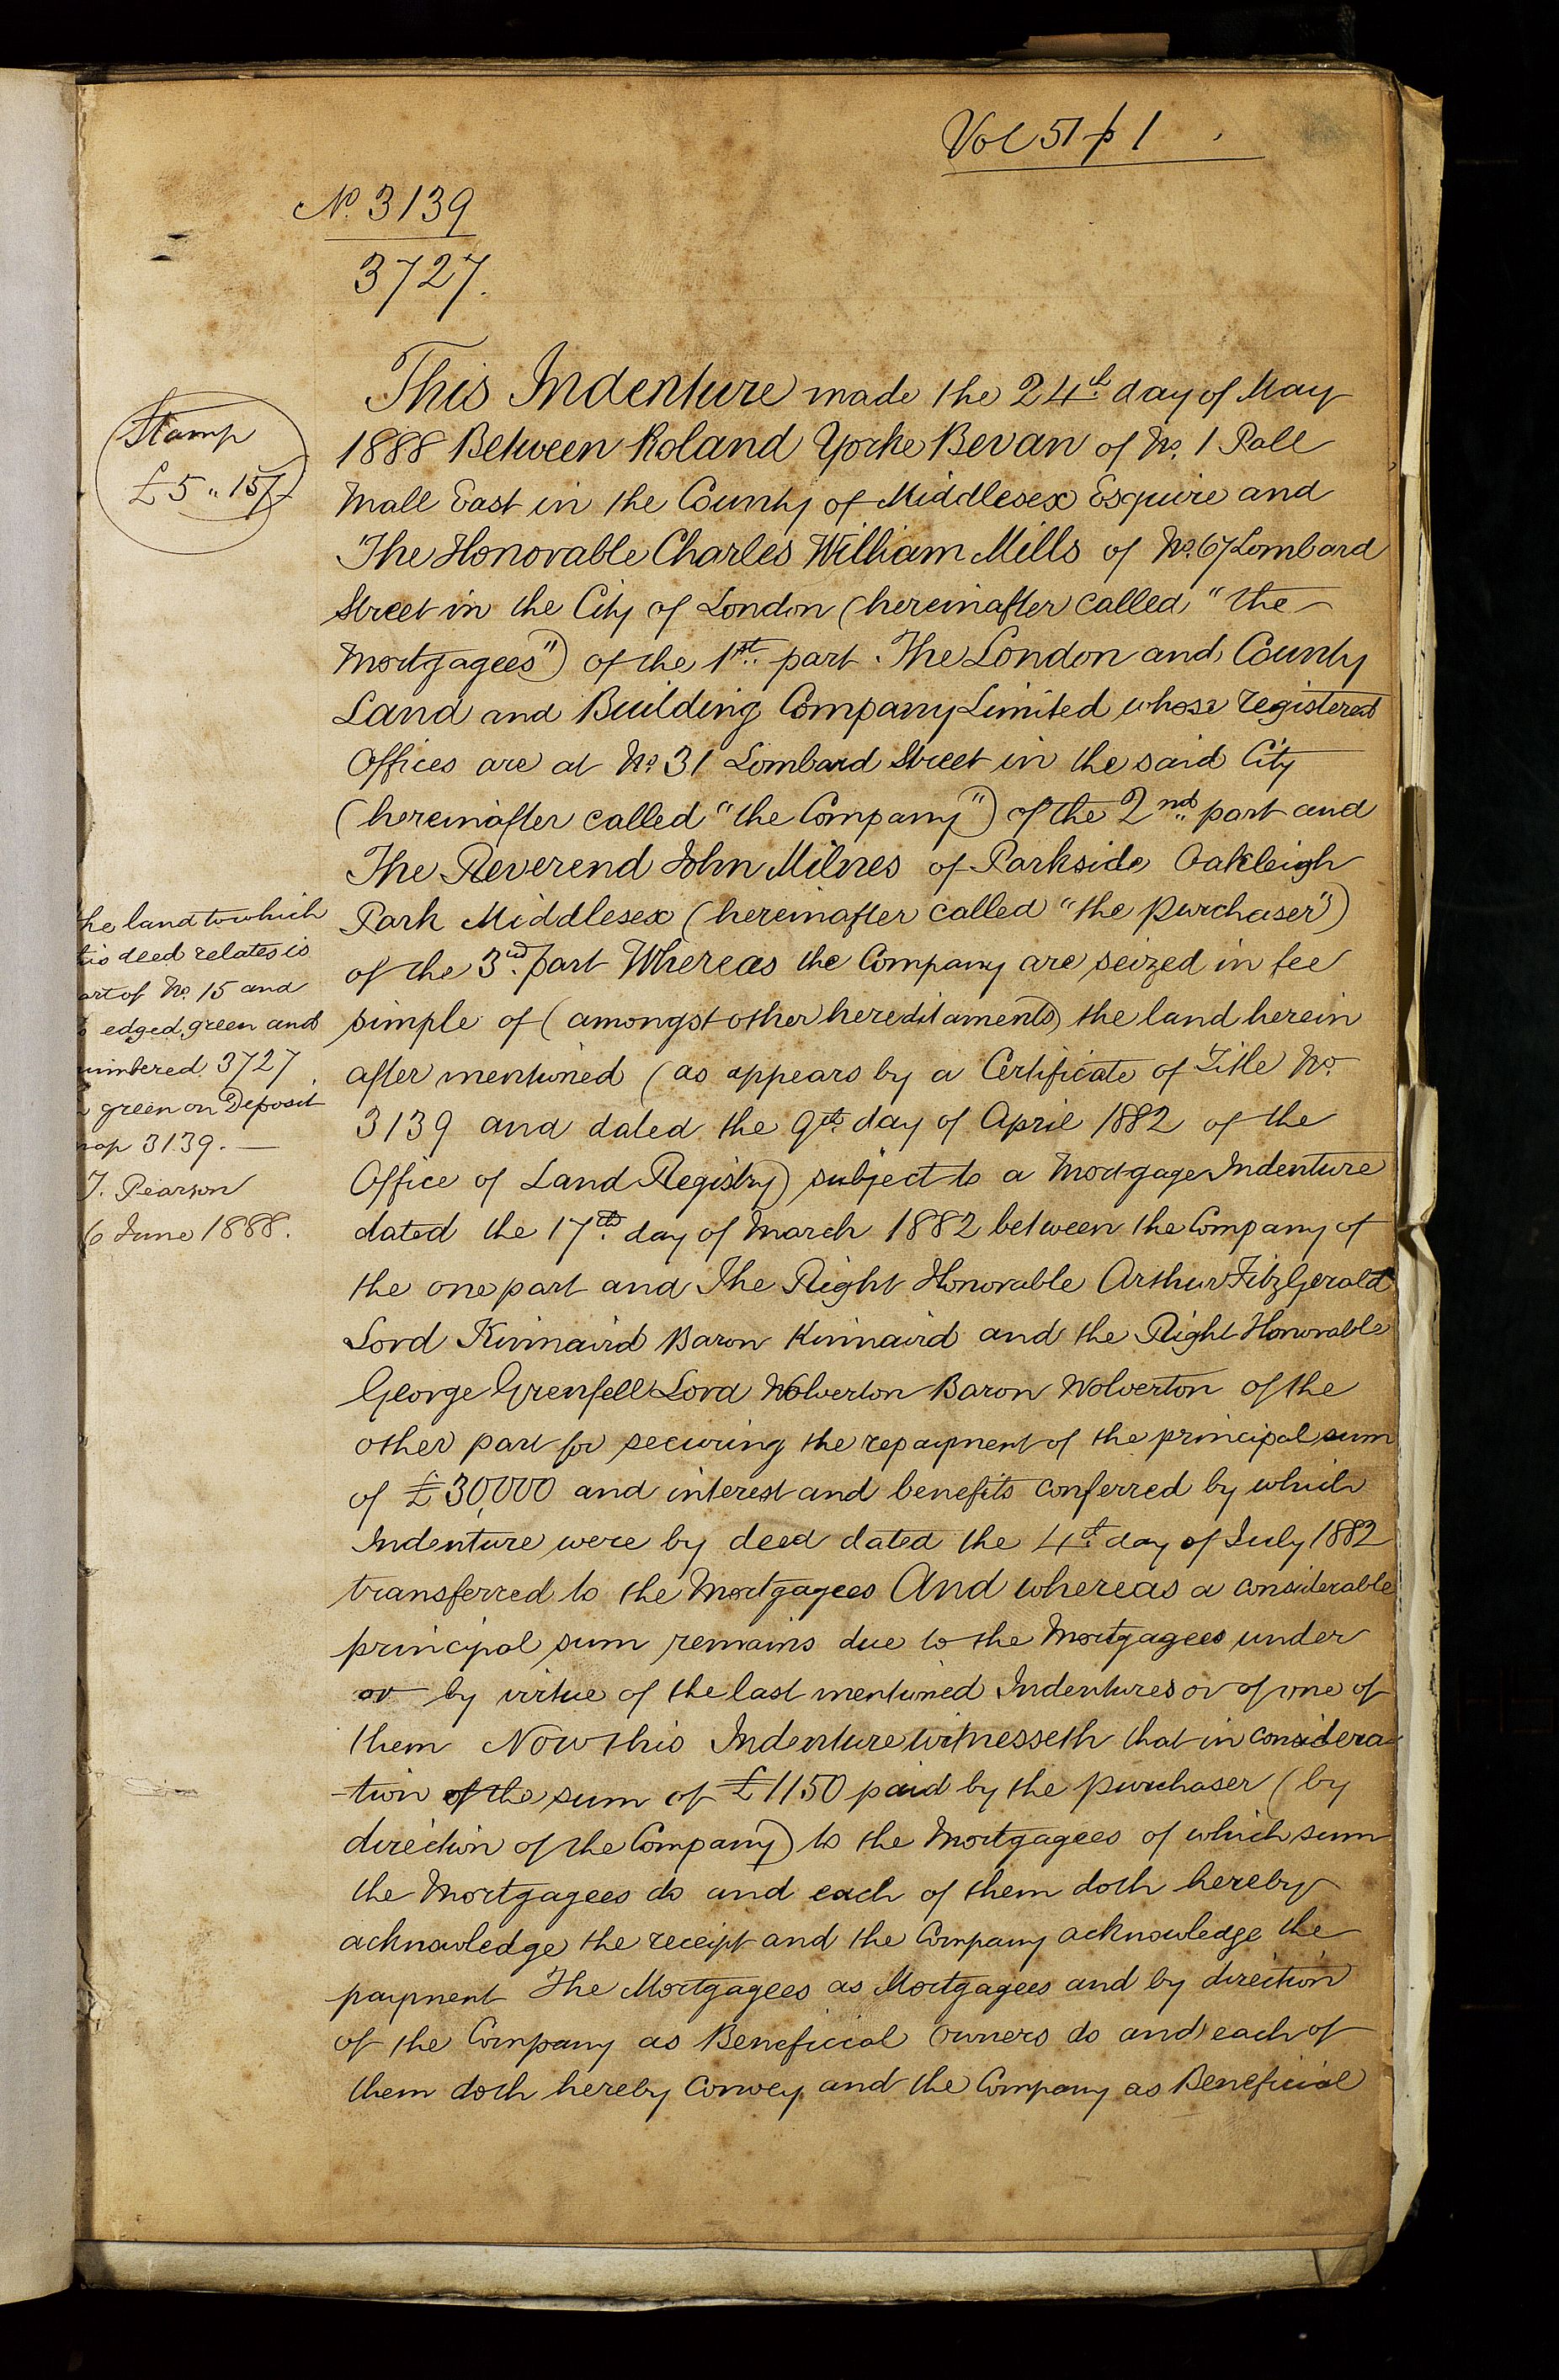 Vol 51 p 1
No. 3139
3727.
Stamp
£5 " 15/-
This Indenture made the 24th. day of May
1888 Between Roland Yorke Bevan of No. 1 Pall
Mall East in the County of Middlesex Esquire and
The Honorable Charles William Mills of No. 67 Lombard
Street in the City of London (hereinafter called "the
Mortgagees") of the 1st. part. The London and County
Land and Building Company Limited whose registered
Offices are at No. 31 Lombard Street in the said City
(hereinafter called "the Company") of the 2nd. part and
The Reverend John Milnes of Parkside Oakleigh
Park Middlesex (hereinafter called "the purchaser")
of the 3rd. part Whereas the Company are seized in fee
simple of (amongst other hereditaments) the land herein
after mentioned (as appears by a Certificate of Title No.
3139 and dated the 9th. day of April 1882 of the
Office of Land Registry) subject to a Mortgage Indenture
dated the 17th. day of March 1882 between the Company of
the one part and The Right Honorable Arthur FitzGerald
Lord Kinnaird Baron Kinnaird and the Right Honorable
George Grenfell Lord Wolverton Baron Wolverton of the
other part for securing the repayment of the principal sum
of £30,000 and interest and benefits conferred by which
Indenture were by deed dated the 4th. day of July 1882
transferred to the Mortgagees And whereas a considerable
principal sum remains due to the Mortgagees under
or by virtue of the last mentioned Indentures or of one of
them Now this Indenture witnesseth that in considera-
-tion of the sum of £1150 paid by the purchaser (by
direction of the Company) to the Mortgagees of which sum
the Mortgagees do and each of them doth hereby
acknowledge the receipt and the Company acknowledge the
payment The Mortgagees as Mortgagees and by direction
of the Company as Beneficial Owners do and each of
them doth hereby Convey and the Company as Beneficial
he land to which
his deed relates is
art of No. 15 and
s edged green and
umbered 3727
n green on Deposit
map 3139. —
T. Pearson
6 June 1888.